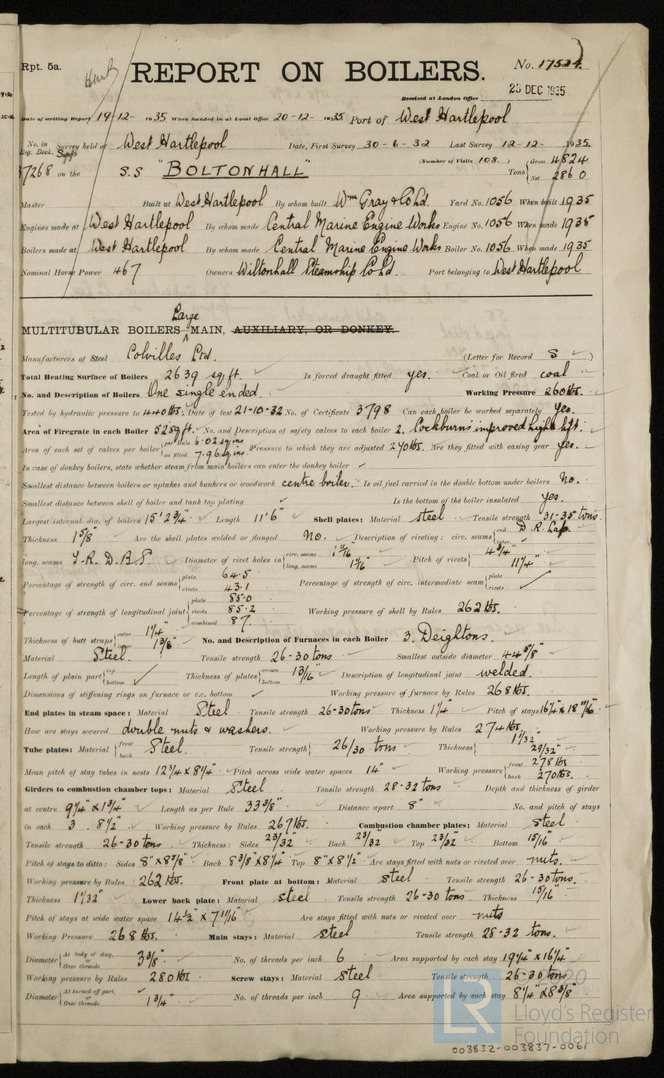 Rpt. 5a.
REPORT ON BOILERS.
No. 17524
Received at London Office 23 DEC 1935
Date of writing Report 19-12- 1935 When handed in at Local Office 20-12- 1935 Port of West Hartlepool
No. in Reg. Book. Survey held at West Hartlepool Date, First Survey 30-6-32 Last Survey 12-12- 1935
(Number of Visits 108.)
on the S.S "BOLTONHALL" Tons Gross 4824
Net 2860
Master Built at West Hartlepool By whom built Wm Gray & Co Ld. Yard No. 1056 When built 1935
Engines made at West Hartlepool By whom made Central Marine Engine Works Engine No. 1056 When made 1935
Boilers made at West Hartlepool By whom made Central Marine Engine Works Boiler No. 1056 When made 1935
Nominal Horse Power 467 Owners Wiltonhall Steamship Co Ld. Port belonging to West Hartlepool
Large
MULTITUBULAR BOILERS MAIN, AUXILIARY, OR DONKEY.
Manufacturers of Steel Colvilles Ltd. (Letter for Record S )
Total Heating Surface of Boilers 2639 sq. ft. Is forced draught fitted yes. Coal or Oil fired coal
No. and Description of Boilers One single ended. Working Pressure 260 lbs.
Tested by hydraulic pressure to 440 lbs. Date of test 21-10-32 No. of Certificate 3798 Can each boiler be worked separately Yes.
Area of Firegrate in each Boiler 52 sq ft. No. and Description of safety valves to each boiler 2. Cockburn's improved high lift.
Area of each set of valves per boiler per rule 6.02 sq ins as fitted 7.96 sq ins. Pressure to which they are adjusted 270 lbs. Are they fitted with easing gear Yes.
In case of donkey boilers, state whether steam from main boilers can enter the donkey boiler
Smallest distance between boilers or uptakes and bunkers or woodwork centre boiler. Is oil fuel carried in the double bottom under boilers No.
Smallest distance between shell of boiler and tank top plating Is the bottom of the boiler insulated yes.
Largest internal dia. of boilers 15' 2 3/4" Length 11' 6" Shell plates: Material steel Tensile strength 31-35 tons
Thickness 1 5/8" Are the shell plates welded or flanged No. Description of riveting: circ. seams end D. R. Lap.
long. seams T.R.D.B.S. Diameter of rivet holes in circ. seams long. seams Pitch of rivets 4 3/4"
11 1/4"
Percentage of strength of circ. end seams plate 64.5 rivets 43.1 Percentage of strength of circ. intermediate seam plate rivets
Percentage of strength of longitudinal joint plate 85.0 rivets 85.2 combined 87. Working pressure of shell by Rules 262 lbs.
Thickness of butt straps outer 1 1/4" inner 1 3/8" No. and Description of Furnaces in each Boiler 3. Deightons.
Material Steel. Tensile strength 26-30 tons Smallest outside diameter 44 5/8"
Length of plain part top bottom Thickness of plates crown bottom 13/16" Description of longitudinal joint welded.
Dimensions of stiffening rings on furnace or c.c. bottom Working pressure of furnace by Rules 268 lbs.
End plates in steam space: Material Steel Tensile strength 26-30 tons Thickness 1 1/4 Pitch of stays
How are stays secured double nuts & washers. Working pressure by Rules 274 lbs.
Tube plates: Material front back Steel. Tensile strength 26/30 tons Thickness 1 1/32"
29/32"
Mean pitch of stay tubes in nests 12 3/4 x 8 1/4 Pitch across wide water spaces 14" Working pressure front 278 lbs back 270 lbs.
Girders to combustion chamber tops: Material Steel Tensile strength 28-32 tons Depth and thickness of girder
at centre 9 1/4" x 1 3/4" Length as per Rule Distance apart 8" No. and pitch of stays
in each 3. 8 1/2" Working pressure by Rules 267 lbs. Combustion chamber plates: Material steel
Tensile strength 26-30 tons Thickness: Sides 23/32 Back 23/32 Top 23/32 Bottom 15/16"
Pitch of stays to ditto: Sides 8" x 8 5/8" Back 8 3/8 x 8 1/4 Top 8" x 8 1/2" Are stays fitted with nuts or riveted over nuts.
Working pressure by Rules 262 lbs. Front plate at bottom: Material steel Tensile strength 26-30 tons.
Thickness 1 1/32" Lower back plate: Material steel Tensile strength 26-30 tons Thickness 15/16"
Pitch of stays at wide water space 14 1/2" x 7 11/16" Are stays fitted with nuts or riveted over nuts
Working Pressure 268 lbs. Main stays: Material steel Tensile strength 28-32 tons.
Diameter At body of stay, or Over threads 3 3/8" No. of threads per inch 6 Area supported by each stay 19 1/4" x 16 1/4"
Working pressure by Rules 280 lbs. Screw stays: Material steel Tensile strength 26-30 tons
Diameter At turned off part, or Over threads 1 3/4" No. of threads per inch 9 Area supported by each stay 8 1/4" x 8 3/8"
LR
2020
Lloyd's Register
Foundation
003832-003837-0061